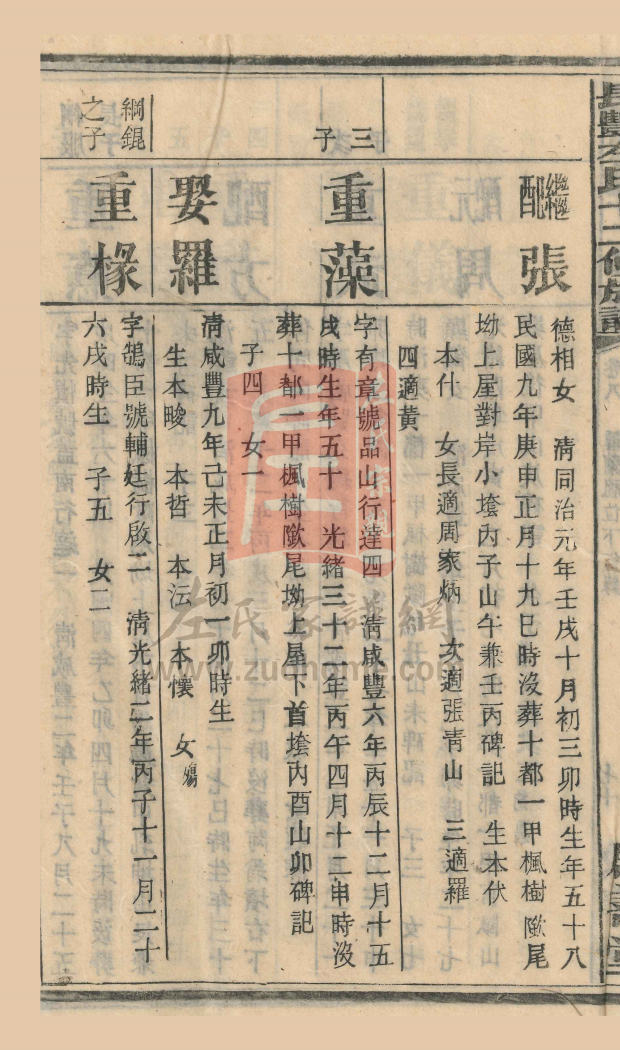 長豐左氏十二修族譜
繼配
張
德相女 清同治元年壬戌十月初三卯時生年五十八
民國九年庚申正月十九巳時沒葬十都一甲楓樹隞尾
坳上屋對岸小塝內子山午兼壬丙碑記 生本伏
本什 女長適周家炳 女適張青山 三適羅
四適黃
三子
重藻
字有章號品山行達四 清咸豐六年丙辰十二月十五
戌時生年五十 光緒三十二年丙午四月十二申時沒
葬十都一甲楓樹隞尾坳上屋下首塝內酉山卯碑記
子四 女一
娶羅
清咸豐九年己未正月初一卯時生
生本晙 本哲 本沄 本懷 女殤
綱錕
之子
重椽
字鵠臣號輔廷行啟二 清光緒二年丙子十一月二十
六戌時生 子五 女二
左氏家譜網
www.zuojiapu.com